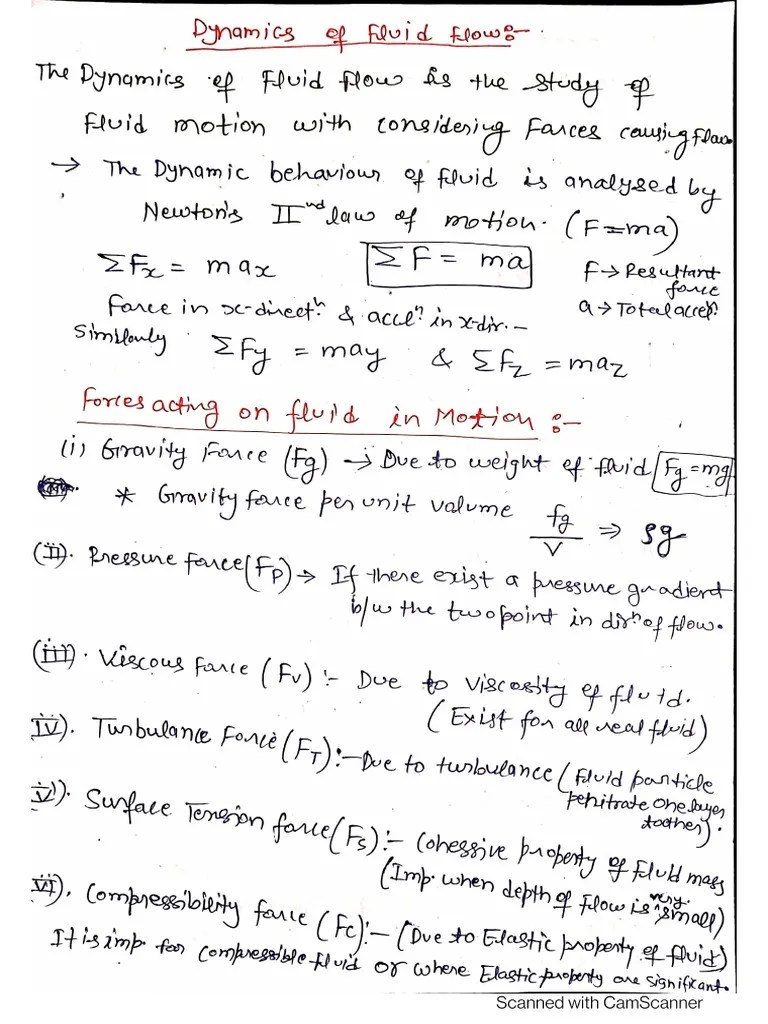 Dynamics of Fluid Flow:-
The Dynamics of Fluid flow is the study of
fluid motion with considering Forces causing flow
→ The Dynamic behaviour of fluid is analysed by
Newton's II nd law of motion. (F=ma)
ΣFx = max
ΣF = ma
F→Resultant
force
a→Total accen.
Force in x-directn. & accln in x-dir.-
Similarly ΣFy = may & ΣFz = maz
Forces acting on fluid in Motion :-
(i) Gravity Force (Fg) → Due to weight of fluid Fg=mg
* Gravity force per unit volume fg/V ⇒ ρg
(II). Pressure force(Fp)→ If there exist a pressure gradient
b/w the two point in dirn of flow.
(iii). Viscous Force (Fv) :- Due to Viscosity of fluid.
(Exist for all real fluid)
IV). Turbulance Force(FT):-Due to turbulance (Fluid particle
penitrate one layer
toother).
V). Surface Tension force(Fs):- Cohessive property of Fluid mass
(Imp. when depth of Flow is very small)
VI). Compressibility force (Fc):- (Due to Elastic property of fluid)
It is imp for compressible fluid or where Elastic property are significant.
Scanned with CamScanner